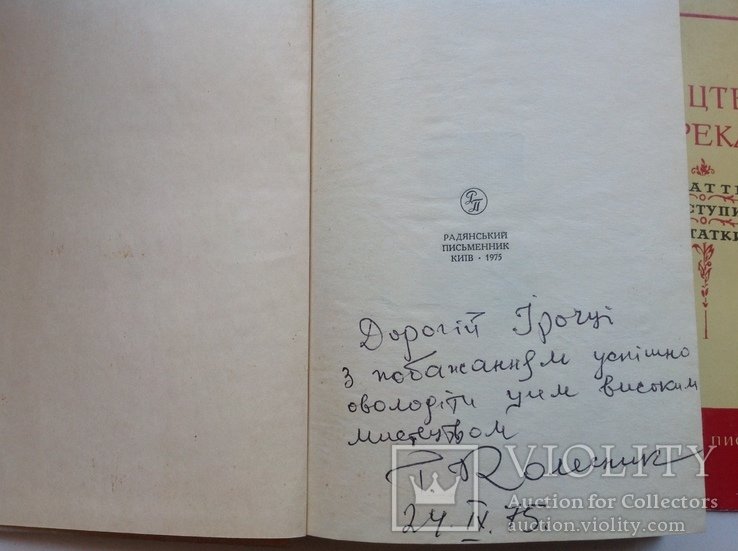 РП
РАДЯНСЬКИЙ
ПИСЬМЕННИК
КИЇВ · 1975
Дорогій Ірочці
з побажанням успішно
оволодіти цим високим
мистецтвом
Колесник
24. IX. 75.
ЦТВ
РЕКА
АТТІ
СТУПИ
ТАТКИ
VIOLITY
Auction for Collectors
auction.violity.com